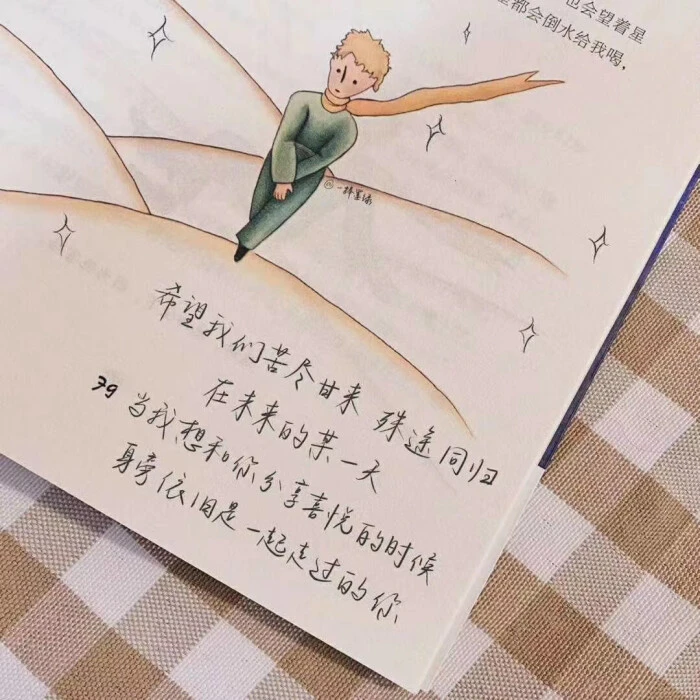 也会望着星
都会倒水给我喝，
希望我们苦尽甘来 殊途同归
在未来的某一天
当我想和你分享喜悦的时候
身旁依旧是一起走过的你
39